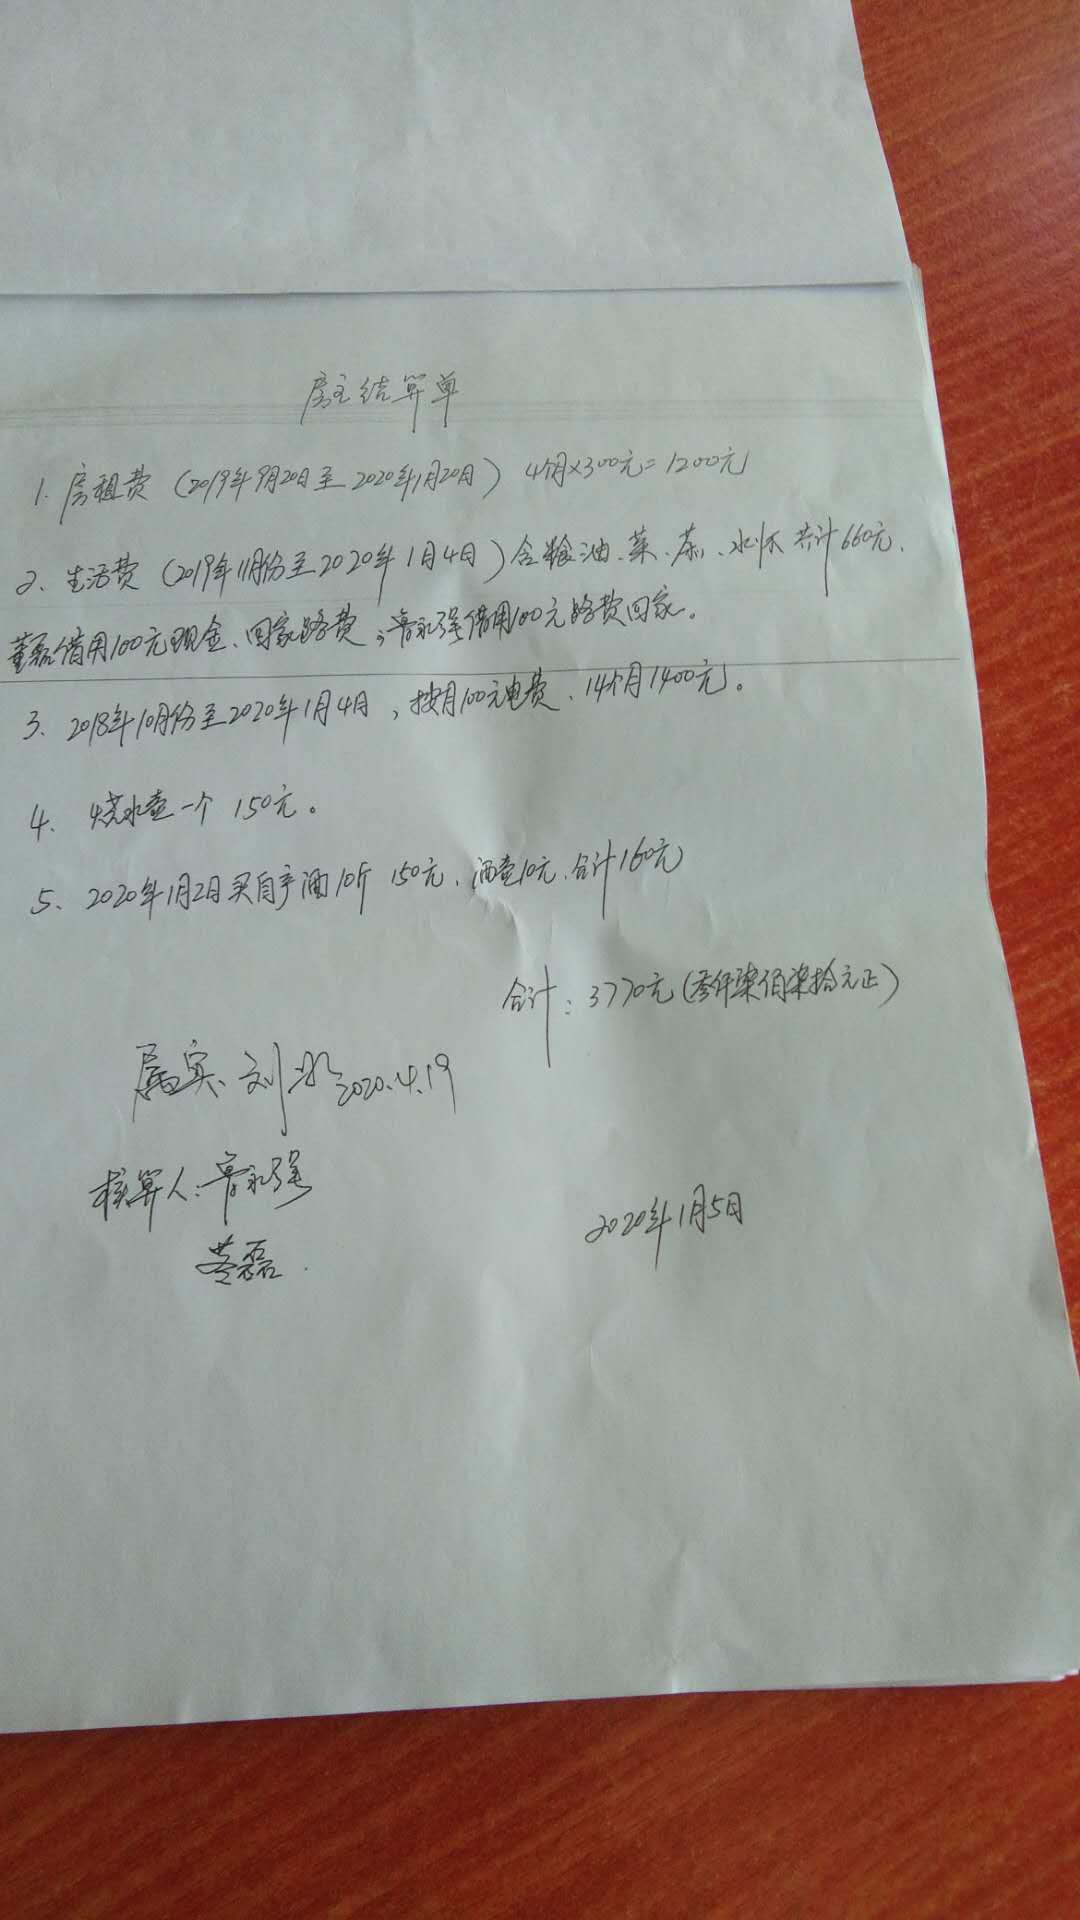 房主结算单
1. 房租费（2019年9月20日至2020年1月20日） 4个月×300元=1200元
2、生活费（2019年11月份至2020年1月4日）含粮油、菜、茶、水杯 共计660元.
董磊借用100元现金、回家路费，鲁永强借用100元路费回家。
3、2018年10月份至2020年1月4日，按月100元电费、14个月1400元。
4、烧水壶一个 150元。
5、2020年1月2日买自产酒10斤 150元、酒壶10元、合计160元
合计：3770元（叁仟柒佰柒拾元正）
属实、刘冰 2020.4.19
核算人：鲁永强
2020年1月5日
董磊